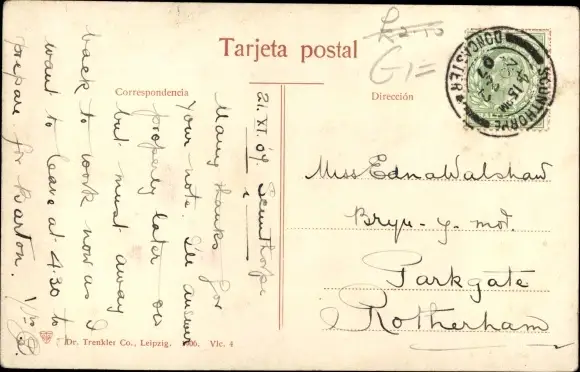 Tarjeta postal
Correspondencia
Dirección
£2-10
G1=
SCUNTHORPE
DONCASTER
21. XI. 09. Scunthorpe
Many thanks for
your note. I'll answer
properly later on
but must away
back to work now as I
want to leave at 4.30 to
prepare for Barton.
Miss Edna Walshaw
Bryn-y-mot
Parkgate
Rotherham
Dr. Trenkler Co., Leipzig. 1906. Vlc. 4